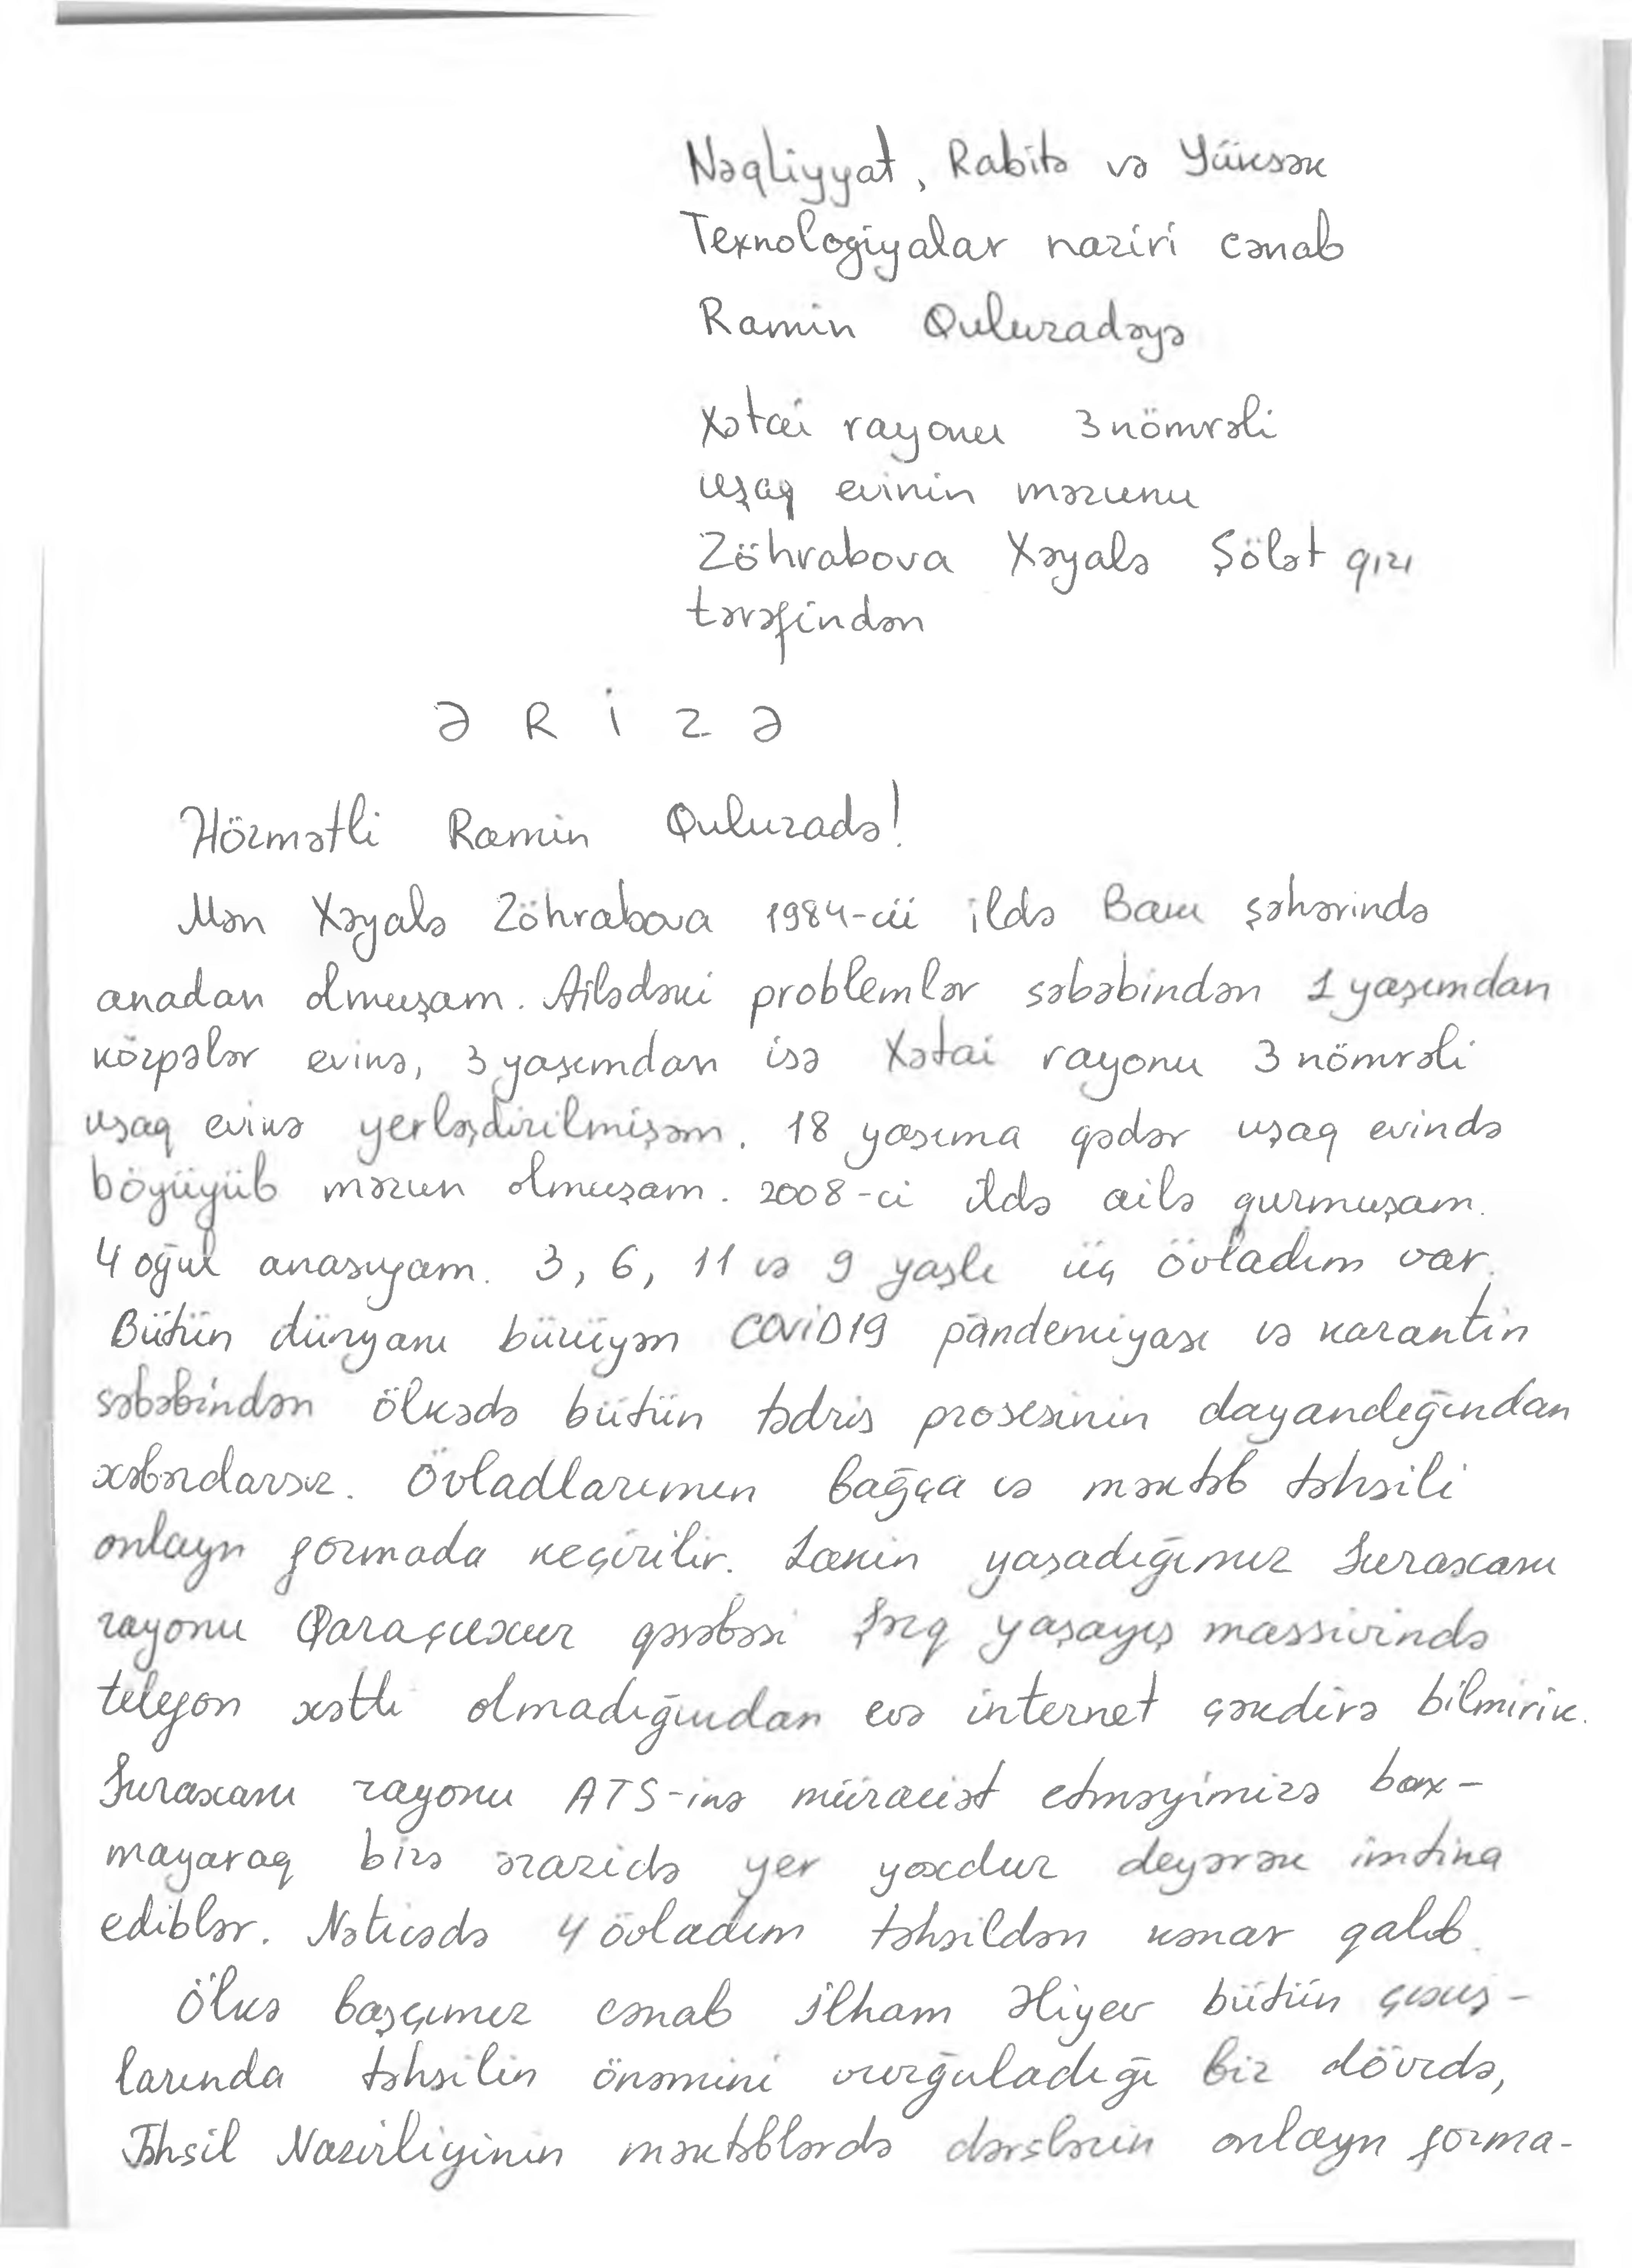 Nəqliyyat, Rabitə və Yüksək
Texnologiyalar naziri cənab
Ramin Quluzadəyə
Xətai rayonu 3 nömrəli
uşaq evinin məzunu
Zöhrabova Xəyalə Şölət qızı
tərəfindən
Ə R İ Z Ə
Hörmətli Ramin Quluzadə!
Mən Xəyalə Zöhrabova 1984-cü ildə Bakı şəhərində
anadan olmuşam. Ailədəki problemlər səbəbindən 1 yaşımdan
körpələr evinə, 3 yaşımdan isə Xətai rayonu 3 nömrəli
uşaq evinə yerləşdirilmişəm. 18 yaşıma qədər uşaq evində
böyüyüb məzun olmuşam. 2008-ci ildə ailə qurmuşam.
4 oğul anasıyam. 3, 6, 11 və 9 yaşlı üç övladım var.
Bütün dünyanı bürüyən COVİD19 pandemiyası və karantin
səbəbindən ölkədə bütün tədris prosesinin dayandığından
xəbərdarsız. Övladlarımın bağça və məktəb təhsili
onlayn formada keçirilir. Lakin yaşadığımız Suraxanı
rayonu Qaraçuxur qəsəbəsi Şərq yaşayış massivində
telefon xətti olmadığından evə internet çəkdirə bilmirik.
Suraxanı rayonu ATS-inə müraciət etməyimizə bax-
mayaraq bizə ərazidə yer yoxdur deyərək imtina
ediblər. Nəticədə 4 övladım təhsildən kənar qalıb.
Ölkə başçımız cənab İlham Əliyev bütün çıxış-
larında təhsilin önəmini vurğuladığı bir dövrdə,
Təhsil Nazirliyinin məktəblərdə dərslərin onlayn forma-